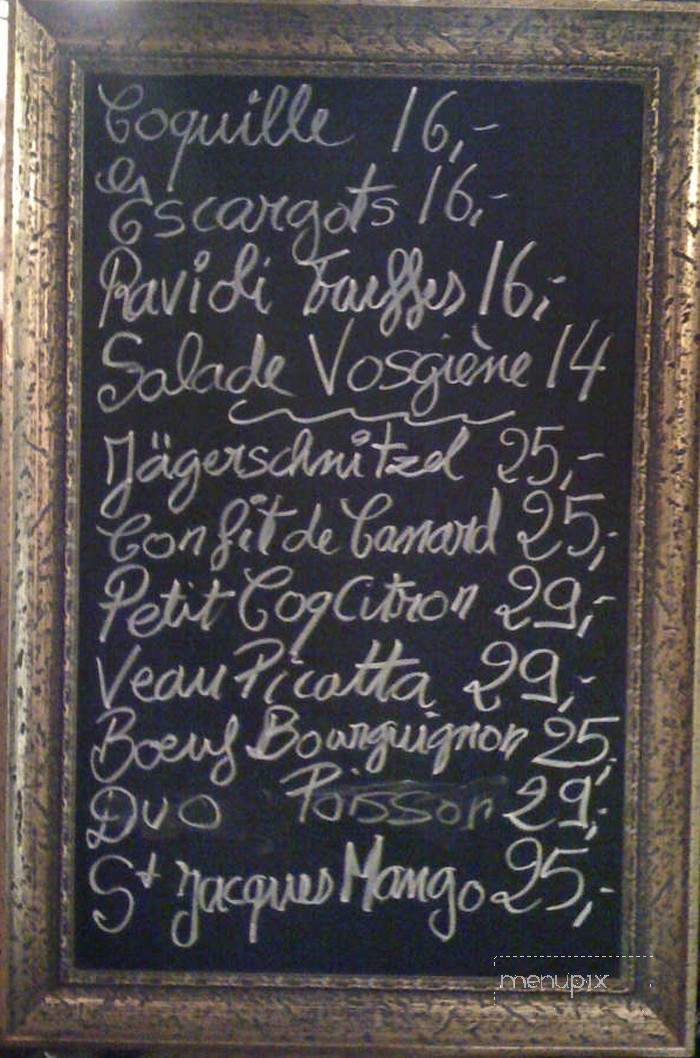 Coquille 16,-
les
Escargots 16,-
Ravioli Truffes 16,-
Salade Vosgiène 14
Jägerschnitzel 25,-
Confit de Canard 25,-
Petit Coq Citron 29,-
Veau Picatta 29,-
Boeuf Bourguignon 25,
Duo Poisson 29,-
St Jacques Mango 25,-
menupix